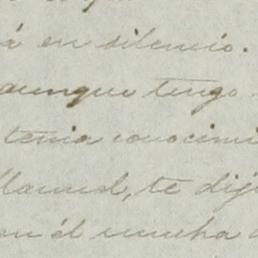 á en silencio.
aunque tengo
tenia conocimi
Manuel, te dij
en él mucha